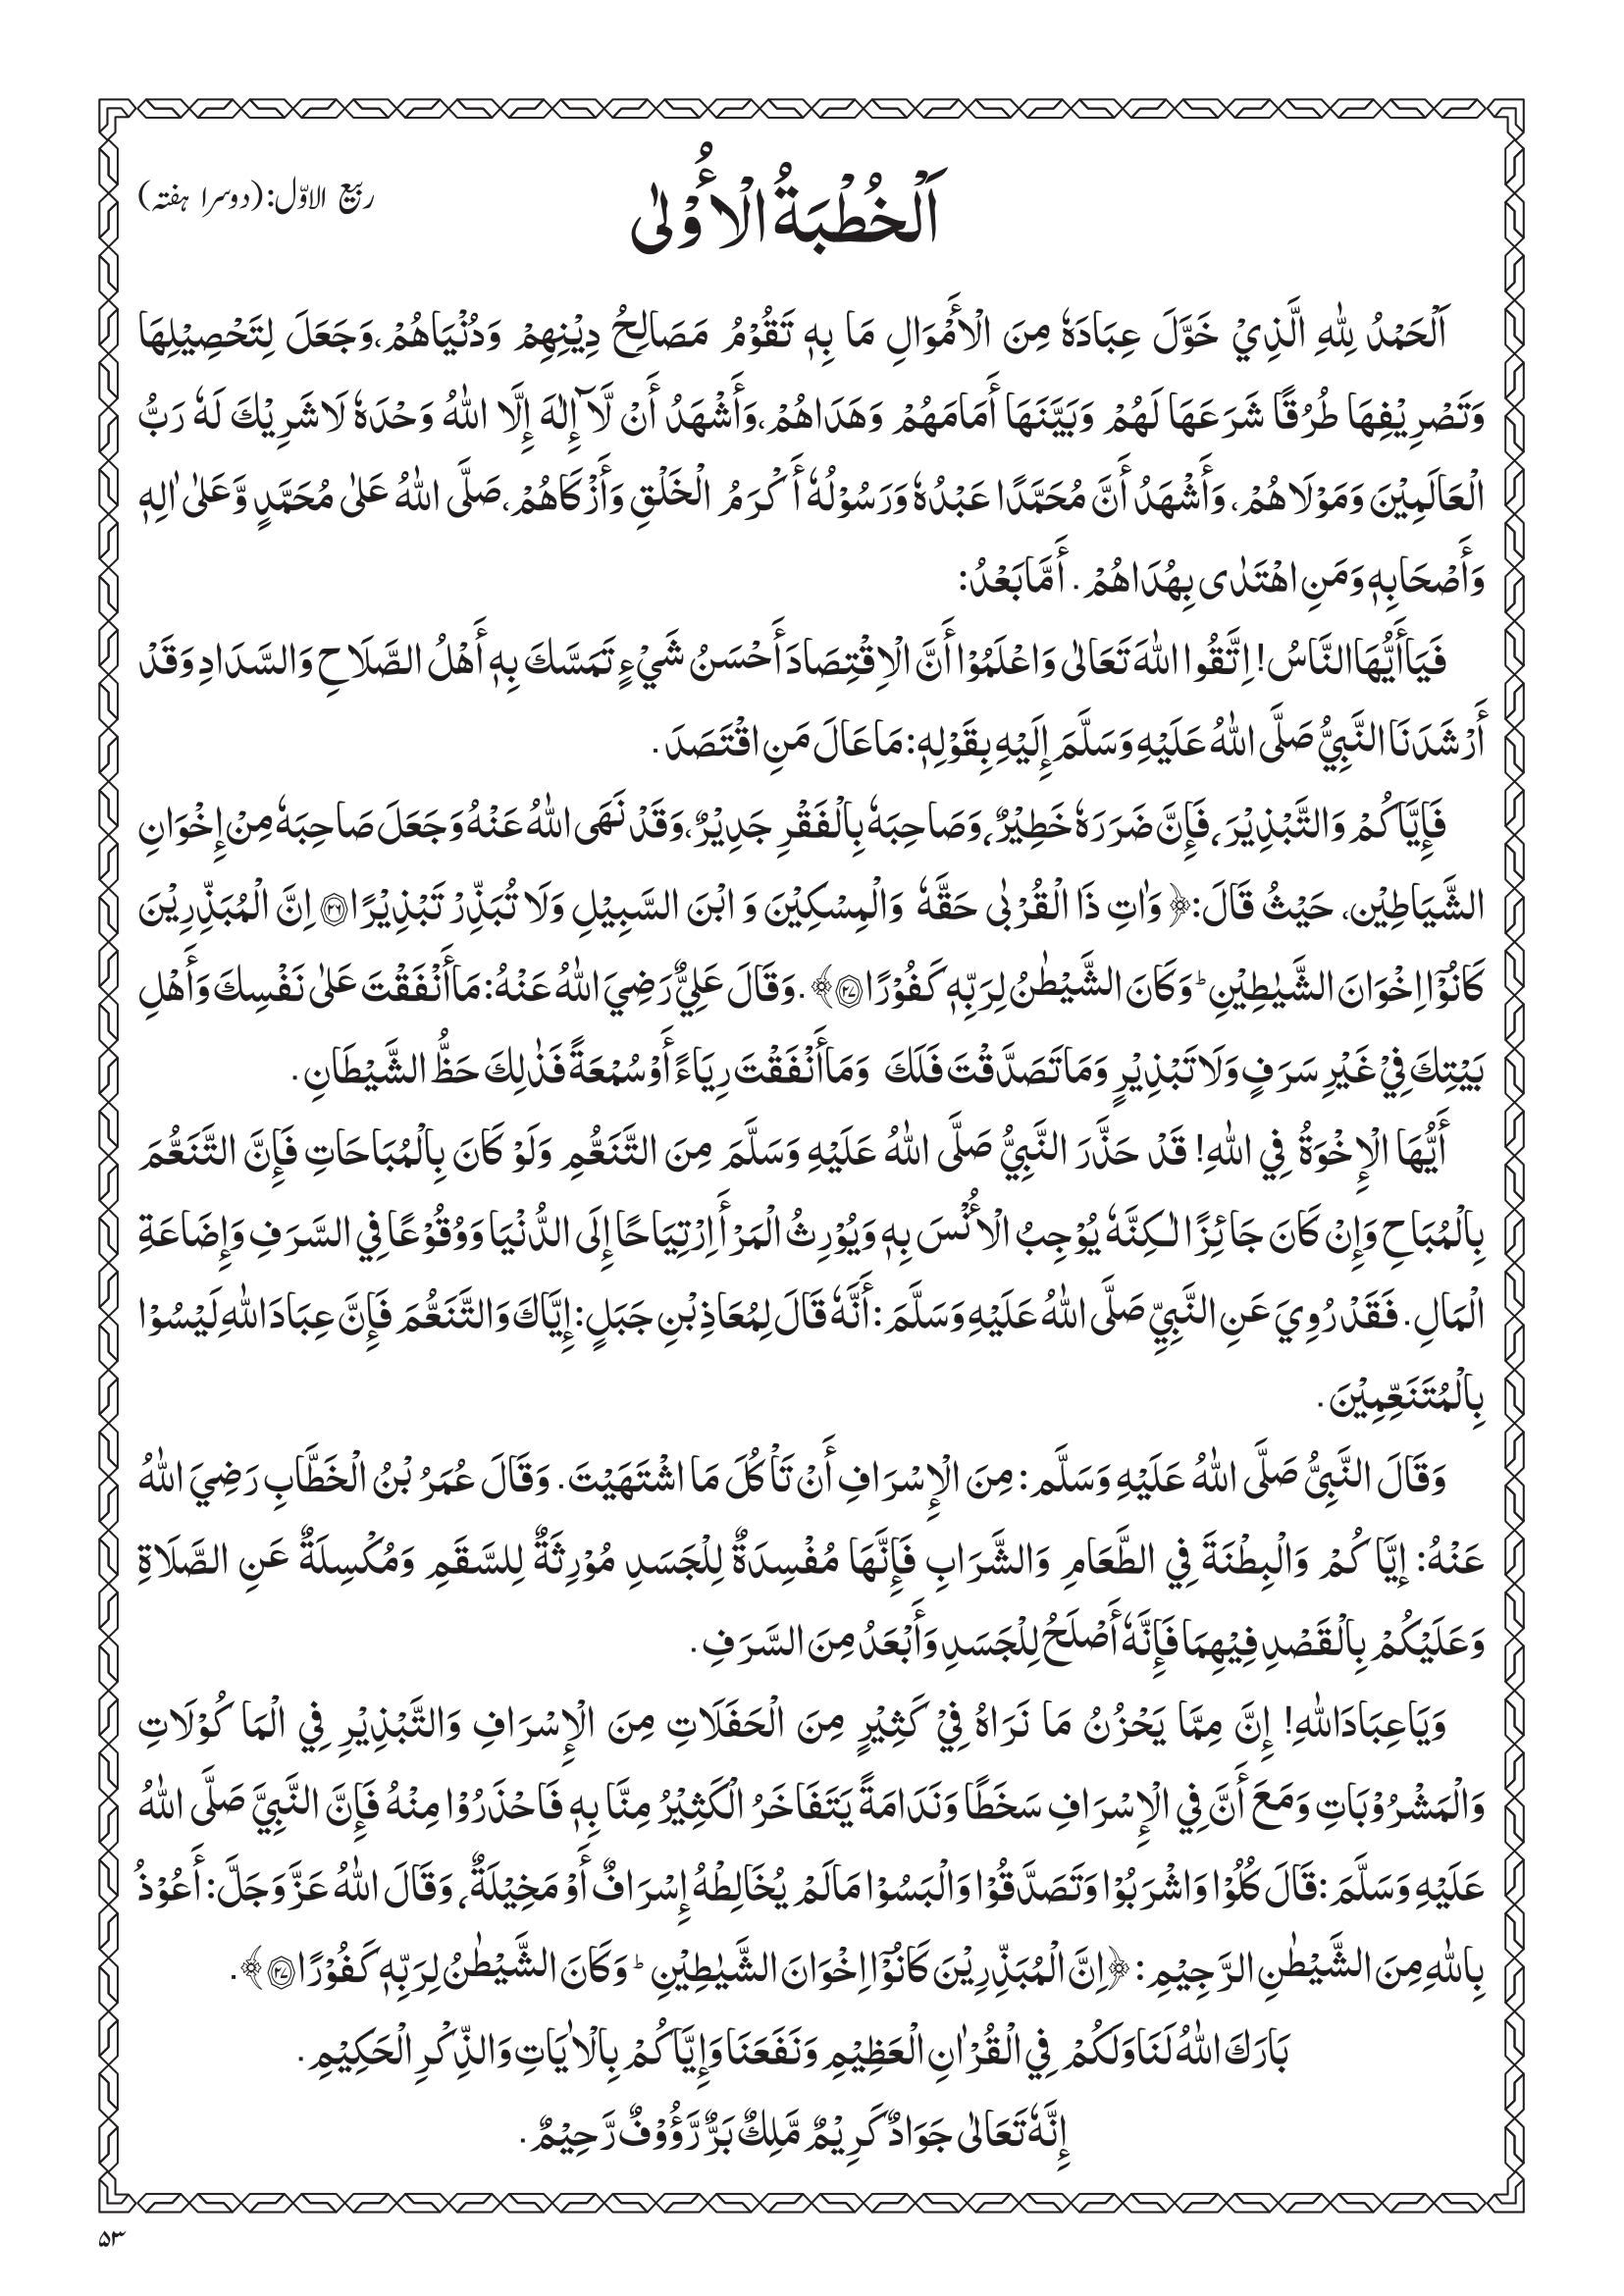 ربیع الاوّل:(دوسرا ہفتہ)
اَلْخُطْبَةُ الْأُوْلٰى
اَلْحَمْدُ لِلّٰهِ الَّذِيْ خَوَّلَ عِبَادَهٗ مِنَ الْأَمْوَالِ مَا بِهٖ تَقُوْمُ مَصَالِحُ دِيْنِهِمْ وَدُنْيَاهُمْ،وَجَعَلَ لِتَحْصِيْلِهَا
وَتَصْرِيْفِهَا طُرُقًا شَرَعَهَا لَهُمْ وَبَيَّنَهَا أَمَامَهُمْ وَهَدَاهُمْ،وَأَشْهَدُ أَنْ لَّآ إِلٰهَ إِلَّا اللّٰهُ وَحْدَهٗ لَاشَرِيْكَ لَهٗ رَبُّ
الْعَالَمِيْنَ وَمَوْلَاهُمْ، وَأَشْهَدُ أَنَّ مُحَمَّدًا عَبْدُهٗ وَرَسُوْلُهٗ أَكْرَمُ الْخَلْقِ وَأَزْكَاهُمْ،صَلَّى اللّٰهُ عَلٰى مُحَمَّدٍ وَّعَلٰى اٰلِهٖ
وَأَصْحَابِهٖ وَمَنِ اهْتَدٰى بِهُدَاهُمْ . أَمَّابَعْدُ:
فَيَاأَيُّهَاالنَّاسُ! اِتَّقُوا اللّٰهَ تَعَالٰى وَاعْلَمُوْا أَنَّ الْاِقْتِصَادَ أَحْسَنُ شَيْءٍ تَمَسَّكَ بِهٖ أَهْلُ الصَّلَاحِ وَالسَّدَادِ وَقَدْ
أَرْشَدَنَا النَّبِيُّ صَلَّى اللّٰهُ عَلَيْهِ وَسَلَّمَ إِلَيْهِ بِقَوْلِهٖ: مَاعَالَ مَنِ اقْتَصَدَ .
فَإِيَّاكُمْ وَالتَّبْذِيْرَ ، فَإِنَّ ضَرَرَهٗ خَطِيْرٌ، وَصَاحِبَهٗ بِالْفَقْرِ جَدِيْرٌ،وَقَدْ نَهَى اللّٰهُ عَنْهُ وَجَعَلَ صَاحِبَهٗ مِنْ إِخْوَانِ
الشَّيَاطِيْنِ، حَيْثُ قَالَ:﴿ وَاٰتِ ذَا الْقُرْبٰى حَقَّهٗ وَالْمِسْكِيْنَ وَ ابْنَ السَّبِيْلِ وَلَا تُبَذِّرْ تَبْذِيْرًا۝۲۶ اِنَّ الْمُبَذِّرِيْنَ
كَانُوْۤا اِخْوَانَ الشَّيٰطِيْنِ ؕ وَكَانَ الشَّيْطٰنُ لِرَبِّهٖ كَفُوْرًا۝۲۷ ﴾ .وَقَالَ عَلِيٌّ رَضِيَ اللّٰهُ عَنْهُ: مَاأَنْفَقْتَ عَلٰى نَفْسِكَ وَأَهْلِ
بَيْتِكَ فِيْ غَيْرِ سَرَفٍ وَلَا تَبْذِيْرٍ وَمَا تَصَدَّقْتَ فَلَكَ وَمَاأَنْفَقْتَ رِيَاءً أَوْ سُمْعَةً فَذٰلِكَ حَظُّ الشَّيْطَانِ .
أَيُّهَا الْإِخْوَةُ فِي اللّٰهِ! قَدْ حَذَّرَ النَّبِيُّ صَلَّى اللّٰهُ عَلَيْهِ وَسَلَّمَ مِنَ التَّنَعُّمِ وَلَوْ كَانَ بِالْمُبَاحَاتِ فَإِنَّ التَّنَعُّمَ
بِالْمُبَاحِ وَإِنْ كَانَ جَائِزًا لٰكِنَّهٗ يُوْجِبُ الْأُنْسَ بِهٖ وَيُوْرِثُ الْمَرْأَ اِرْتِيَاحًا إِلَى الدُّنْيَا وَوُقُوْعًا فِي السَّرَفِ وَإِضَاعَةِ
الْمَالِ . فَقَدْ رُوِيَ عَنِ النَّبِيِّ صَلَّى اللّٰهُ عَلَيْهِ وَسَلَّمَ : أَنَّهٗ قَالَ لِمُعَاذِ بْنِ جَبَلٍ: إِيَّاكَ وَالتَّنَعُّمَ فَإِنَّ عِبَادَ اللّٰهِ لَيْسُوْا
بِالْمُتَنَعِّمِيْنَ .
وَقَالَ النَّبِيُّ صَلَّى اللّٰهُ عَلَيْهِ وَسَلَّم : مِنَ الْإِسْرَافِ أَنْ تَأْكُلَ مَا اشْتَهَيْتَ . وَقَالَ عُمَرُ بْنُ الْخَطَّابِ رَضِيَ اللّٰهُ
عَنْهُ: إِيَّاكُمْ وَالْبِطْنَةَ فِي الطَّعَامِ وَالشَّرَابِ فَإِنَّهَا مُفْسِدَةٌ لِلْجَسَدِ مُوْرِثَةٌ لِلسَّقَمِ وَمُكْسِلَةٌ عَنِ الصَّلَاةِ
وَعَلَيْكُمْ بِالْقَصْدِ فِيْهِمَا فَإِنَّهٗ أَصْلَحُ لِلْجَسَدِ وَأَبْعَدُ مِنَ السَّرَفِ .
وَيَاعِبَادَاللّٰهِ! إِنَّ مِمَّا يَحْزُنُ مَا نَرَاهُ فِيْ كَثِيْرٍ مِنَ الْحَفَلَاتِ مِنَ الْإِسْرَافِ وَالتَّبْذِيْرِ فِي الْمَاكُوْلَاتِ
وَالْمَشْرُوْبَاتِ وَمَعَ أَنَّ فِي الْإِسْرَافِ سَخَطًا وَنَدَامَةً يَتَفَاخَرُ الْكَثِيْرُ مِنَّا بِهٖ فَاحْذَرُوْا مِنْهُ فَإِنَّ النَّبِيَّ صَلَّى اللّٰهُ
عَلَيْهِ وَسَلَّمَ :قَالَ كُلُوْا وَاشْرَبُوْا وَتَصَدَّقُوْا وَالْبَسُوْا مَا لَمْ يُخَالِطْهُ إِسْرَافٌ أَوْ مَخِيْلَةٌ ، وَقَالَ اللّٰهُ عَزَّوَجَلَّ: أَعُوْذُ
بِاللّٰهِ مِنَ الشَّيْطٰنِ الرَّجِيْمِ : ﴿اِنَّ الْمُبَذِّرِيْنَ كَانُوْۤا اِخْوَانَ الشَّيٰطِيْنِ ؕ وَكَانَ الشَّيْطٰنُ لِرَبِّهٖ كَفُوْرًا۝۲۷﴾.
بَارَكَ اللّٰهُ لَنَا وَلَكُمْ فِي الْقُرْاٰنِ الْعَظِيْمِ وَنَفَعَنَا وَإِيَّاكُمْ بِالْاٰيَاتِ وَالذِّكْرِ الْحَكِيْمِ .
إِنَّهٗ تَعَالٰى جَوَادٌ كَرِيْمٌ مَّلِكٌ بَرٌّ رَّؤُوْفٌ رَّحِيْمٌ .
۵۳